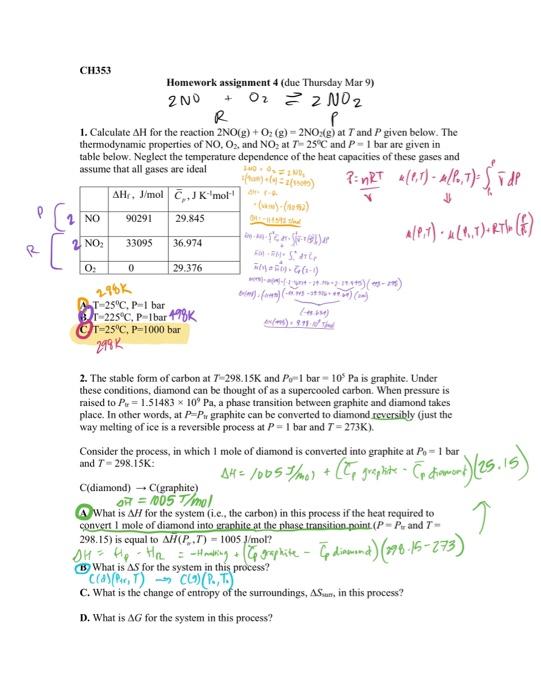 CH353
Homework assignment 4 (due Thursday Mar 9)
2NO + O2 ⇌ 2NO2
R P
1. Calculate ΔH for the reaction 2NO(g) + O2 (g) = 2NO2(g) at T and P given below. The
thermodynamic properties of NO, O2, and NO2 at T= 25°C and P = 1 bar are given in
table below. Neglect the temperature dependence of the heat capacities of these gases and
assume that all gases are ideal
ΔHf , J/mol C̅p, J K-1mol-1
P 2 NO 90291 29.845
R 2 NO2 33095 36.974
O2 0 29.376
298K
A. T=25°C, P=1 bar
B. T=225°C, P=1bar 498K
C. T=25°C, P=1000 bar
298K
2. The stable form of carbon at T=298.15K and P0=1 bar = 10⁵ Pa is graphite. Under
these conditions, diamond can be thought of as a supercooled carbon. When pressure is
raised to Ptr = 1.51483 × 10⁹ Pa, a phase transition between graphite and diamond takes
place. In other words, at P=Ptr graphite can be converted to diamond reversibly (just the
way melting of ice is a reversible process at P = 1 bar and T = 273K).
Consider the process, in which 1 mole of diamond is converted into graphite at P0 = 1 bar
and T = 298.15K:
ΔH = 1005 J/mol + (C̅p graphite - C̅p diamond)(25.15)
C(diamond) → C(graphite)
ΔH̅ = 1005 J/mol
A. What is ΔH for the system (i.e., the carbon) in this process if the heat required to
convert 1 mole of diamond into graphite at the phase transition point (P = Ptr and T =
298.15) is equal to ΔH̅(Ptr, T) = 1005 J/mol?
ΔH = Hp - HR = (C̅p graphite - C̅p diamond)(298.15-273)
B. What is ΔS for the system in this process?
C(d)(Ptr,T) → C(g)(P0,T0)
C. What is the change of entropy of the surroundings, ΔSsurr, in this process?
D. What is ΔG for the system in this process?